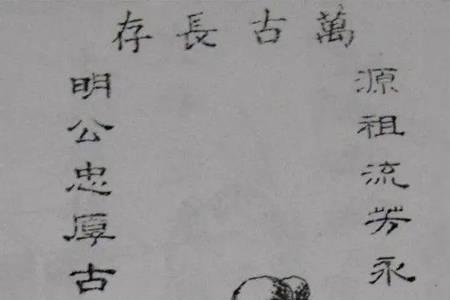 萬古長存
源祖流芳永
明公忠厚古